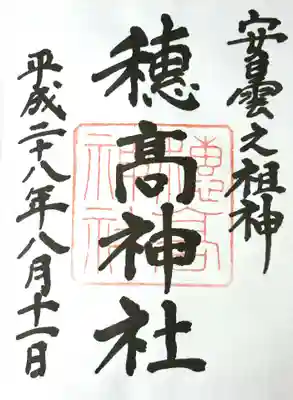 安曇之祖神
穂高神社
平成二十八年八月十一日
穂高
神社